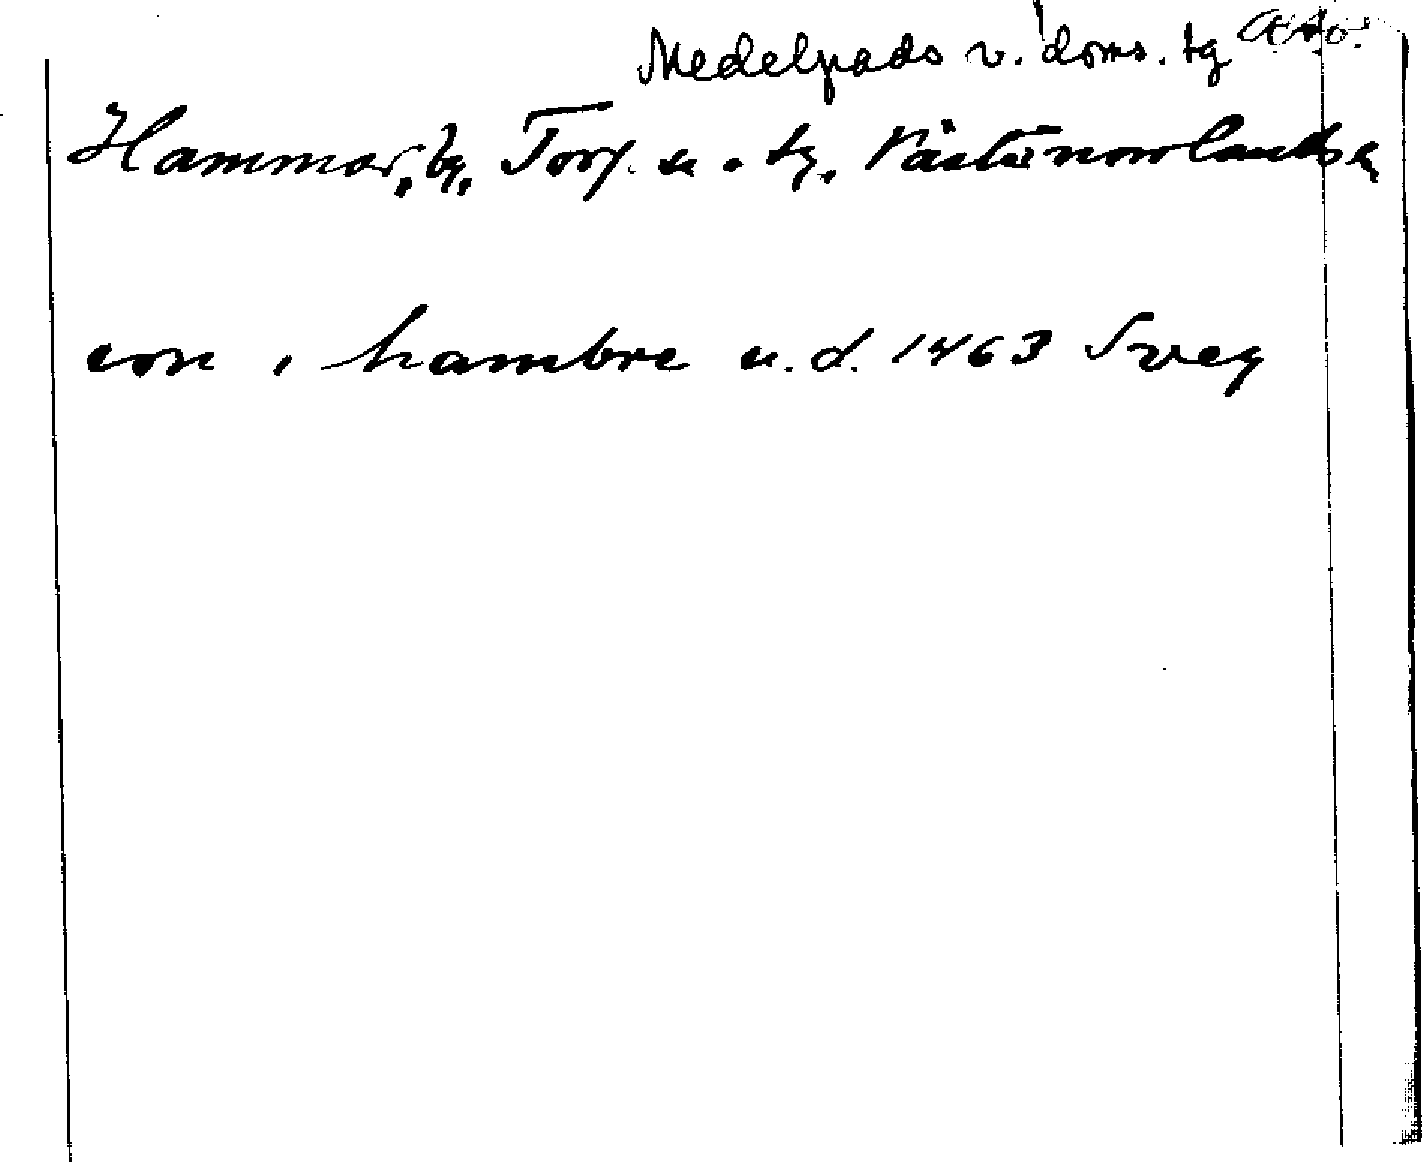 Medelpads v. doms. tg
Hammar, by, Torp s. o. tg. Västernorrlands
eon i hambre u. d. 1463 Sveg